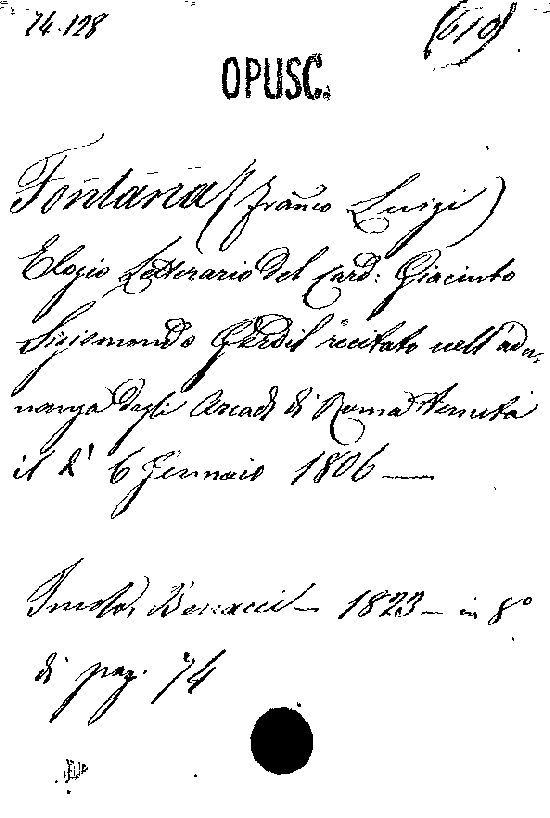 74.128
(619)
OPUSC.
Fontana (Franco Luigi)
Elogio Letterario del Card: Giacinto
Sigismondo Gerdil recitato nell'adu-
nanza degli Arcadi di Roma tenuta
il dì 6 Gennaio 1806 —
Imola, Benacci — 1823 — in 8º
di pag. 74